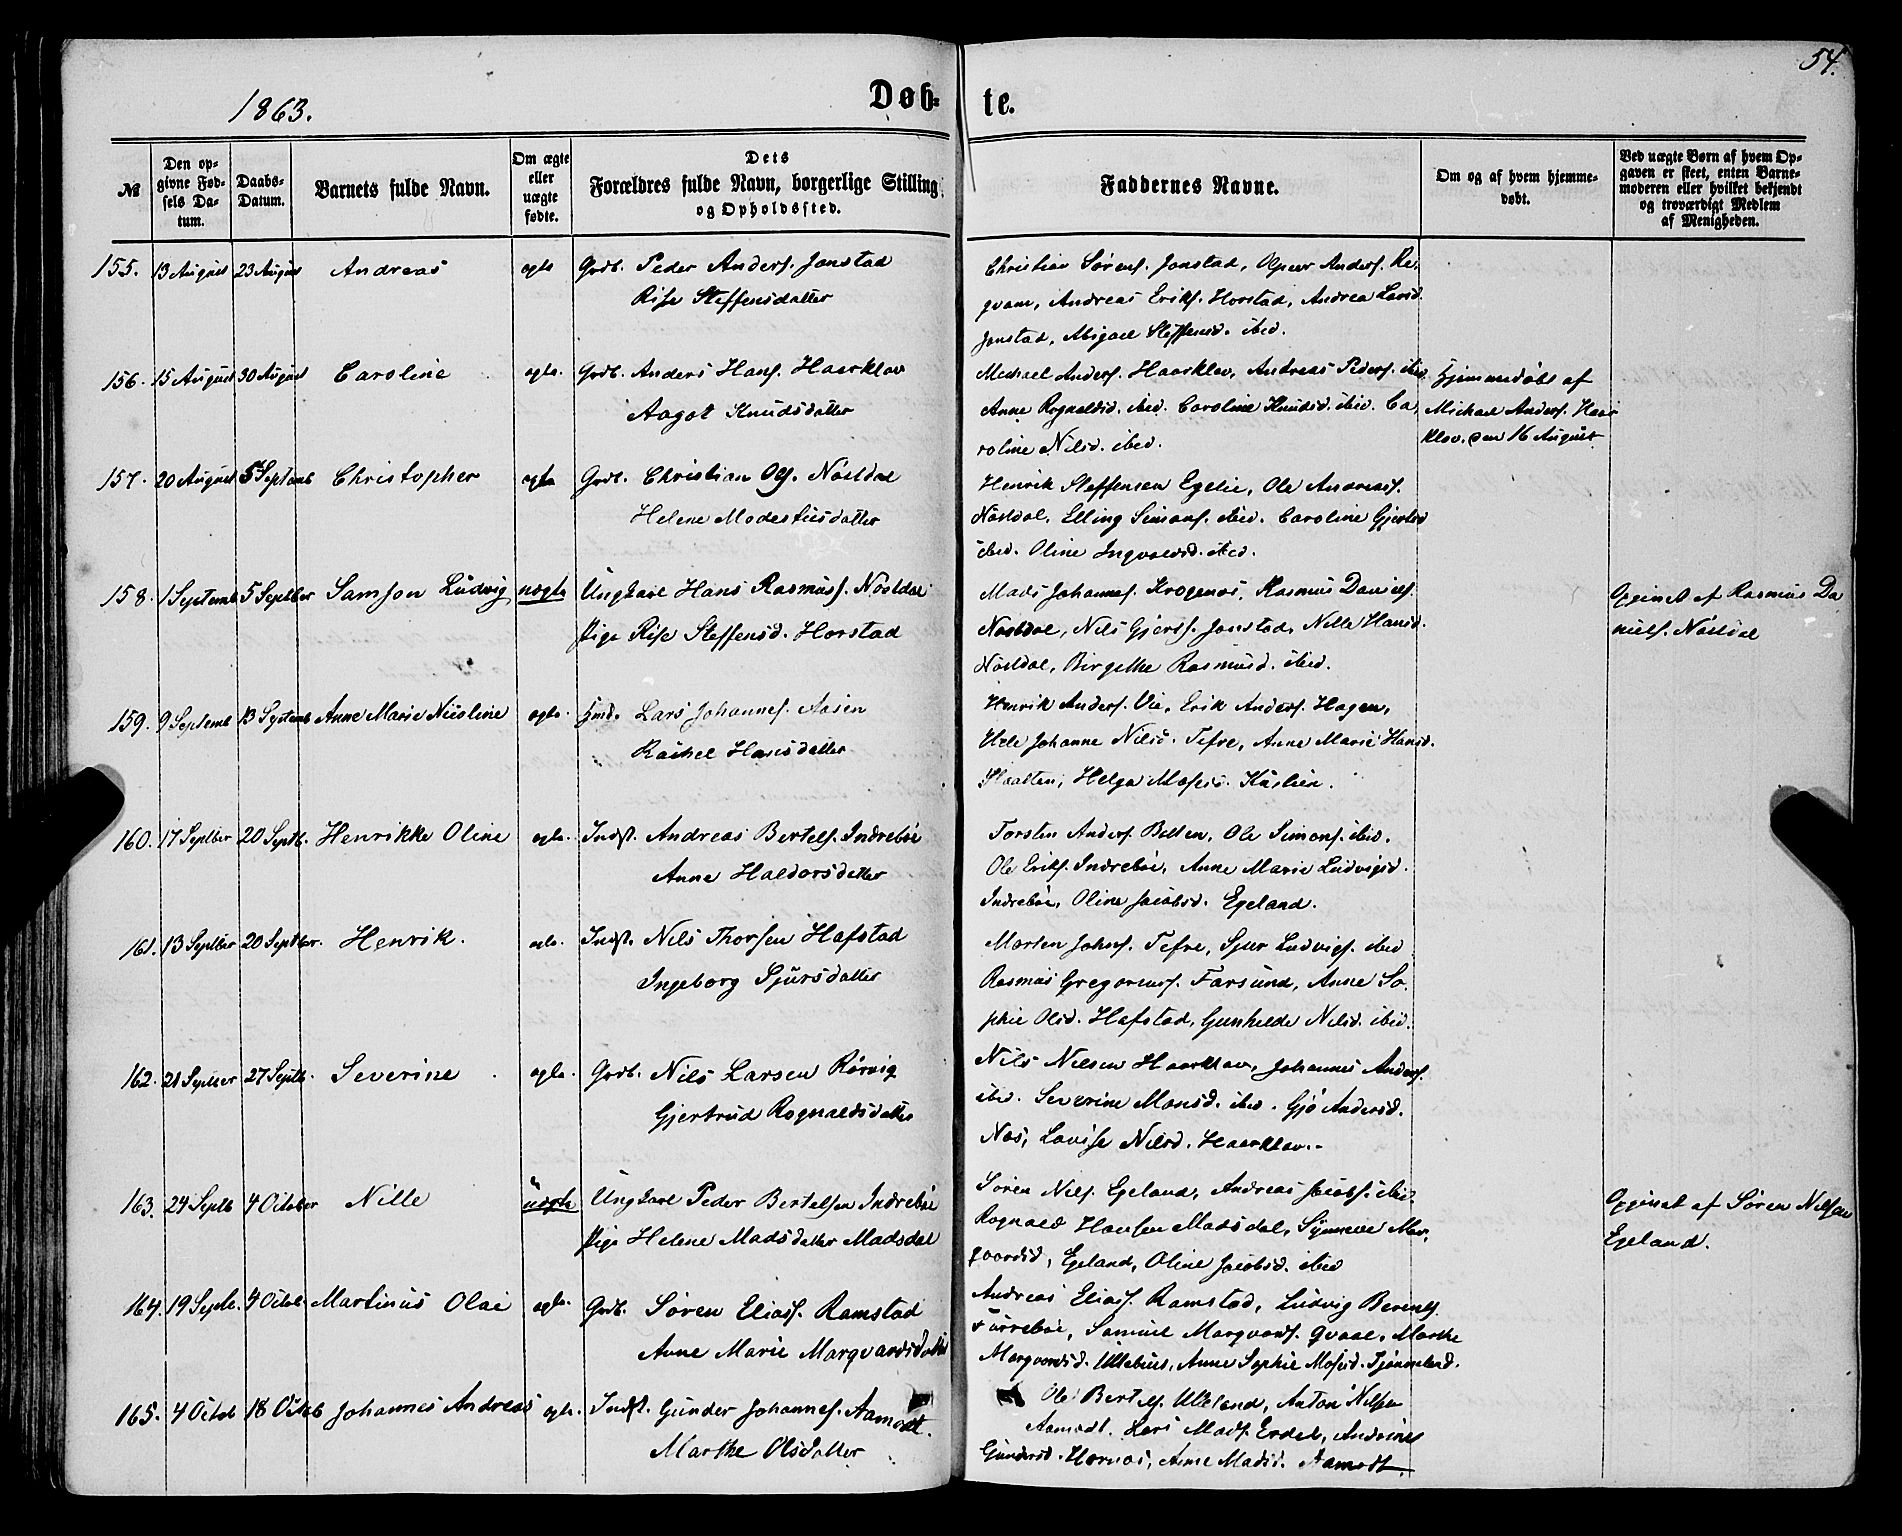 54.
1863.
Døb-
te.
№
Den op-
givne Fød-
sels Da-
tum.
Daabs-
Datum.
Barnets fulde Navn.
Om ægte
eller
uægte
fødte.
Dets
Forældres fulde Navn, borgerlige Stilling
og Opholdssted.
Faddernes Navne.
Om og af hvem hjemme-
døbt.
Ved uægte Børn af hvem Op-
gaven er skeet, enten Barne-
moderen eller hvilket bekjendt
og troværdigt Medlem
af Menigheden.
155. 13 August 23 August Andreas ægte Grdb. Peder Anders. Jonstad
Rise Steffensdatter
Christian Sørens. Jonstad, Anders. Re-
qvam, Andreas Eriks. Horstad, Andrea Larsd.
Jonstad, Abigael Steffensd. ibid.
156. 15 August 30 August Caroline ægte. Grdb. Anders Hans. Haarklav
Aagot Knudsdatter
Michael Anders. Haarklav, Andreas Peders. ibid.
Anne Rognaldsd. ibid. Caroline Knudsd. ibid. Ca-
roline Nilsd. ibid.
Hjemmedøbt af
Michael Anders. Haar
klav. den 16 August
157. 20 August 5 Septemb Christopher ægte Grdb. Christian Ols. Nøstdal
Helene Modestusdatter
Henrik Steffensen Egelie, Ole Andreass.
Nøstdal, Elling Simons. ibid. Caroline Gjertsd
ibid. Oline Ingvaldsd. ibid.
158. 1 Septemb 5 Septber Samson Ludvig uægte Ungkarl Hans Rasmuss. Nøstdal
Pige Rise Steffensd. Horstad
Mads Johannes. Krogenæs, Rasmus Daniels.
Nøstdal, Nils Gjerts. Jonstad, Nille Hansd.
Nøstdal, Birgethe Rasmusd. ibid.
Opgivet af Rasmus Da
niels. Nøstdal
159. 9 Septemb 13 Septemb Anne Marie Nicoline ægte. Hmd. Lars Johannes. Aasen
Rachel Hansdatter
Henrik Anders. Vie, Erik Anders. Hagen,
Johanne Nilsd. Tefre, Anne Marie Hansd.
Helga Mosesd.
160. 17 Septber 20 Septb. Henrikke Oline ægte. Indst. Andreas Bertels. Indrebøe
Anne Haldorsdatter
Torsten Anders. Botten, Ole Simons. ibid.
Ole Eriks. Indrebøe, Anne Marie Ludvigsd.
Indrebøe, Oline Jacobsd. Egeland.
161. 13 Septber 20 Septber. Henrik. ægte. Indst. Nils Thorsen Hafstad
Ingeborg Sjursdatter
Morten Johns. Tefre, Sjur Ludvigs. ibid
Rasmus Gregoriuss. Farsund, Anne So-
phie Olsd. Hafstad, Gunhilde Nilsd. ibid.
162. 21 Septber 27 Septb. Severine ægte. Grdb. Nils Larsen Rørvig
Gjertrud Rognaldsdatter
Nils Nilsen Haarklav, Johannes Anders.
ibid. Severine Monsd. ibid. Gjø Andersd.
Næs, Lovise Nilsd. Haarklav.
163. 24 Septb 4 October Nille uægte Ungkarl Peder Bertelsen Indrebøe
Pige Helene Madsdatter Madsdal
Søren Nils. Egeland, Andreas Jacobs. ibid
Rognald Hansen Madsdal, Synneve Mar-
qvardsd. Egeland, Oline Jacobsd. ibid
Opgivet af Søren Nilsen
Egeland.
164. 19 Septb. 4 Octob. Martinus Olai ægte. Grdb. Søren Eliass. Ramstad
Anne Marie Marqvardsdatter
Andreas Eliass. Ramstad, Ludvig Berents.
Furrebøe, Samuel Marqvards. Qvaal, Marthe
Marqvardsd. Ullebust, Anne Sophie Mosesd. Tjønneland.
165. 4 Octob 18 Octob Johannes Andreas ægte. Indst. Gunder Johannes. Aamodt.
Marthe Olsdatter
Ole Bertels. Ulleland, Anton Nilsen
Aamodt. Lars Mads. Erdal, Andrine
Gundersd. Hornæs, Anne Madsd. Aamodt.